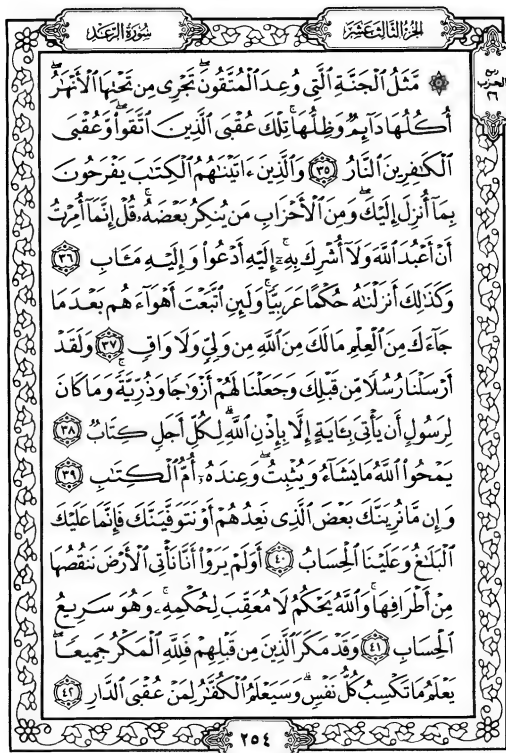 الجزء الثالث عشر
سورة الرعد
ربع
الحزب
٢٦
۞ مَّثَلُ الْجَنَّةِ الَّتِي وُعِدَ الْمُتَّقُونَ ۖ تَجْرِي مِن تَحْتِهَا الْأَنْهَٰرُ ۖ
أُكُلُهَا دَآئِمٌ وَظِلُّهَا ۚ تِلْكَ عُقْبَى الَّذِينَ اتَّقَوا۟ ۖ وَّعُقْبَى
الْكَٰفِرِينَ النَّارُ ٣٥ وَالَّذِينَ ءَاتَيْنَٰهُمُ الْكِتَٰبَ يَفْرَحُونَ
بِمَآ أُنزِلَ إِلَيْكَ ۖ وَمِنَ الْأَحْزَابِ مَن يُنكِرُ بَعْضَهُۥ ۚ قُلْ إِنَّمَآ أُمِرْتُ
أَنْ أَعْبُدَ اللَّهَ وَلَآ أُشْرِكَ بِهِۦٓ ۚ إِلَيْهِ أَدْعُوا۟ وَإِلَيْهِ مَـَٔابِ ٣٦
وَكَذَٰلِكَ أَنزَلْنَٰهُ حُكْمًا عَرَبِيًّا ۚ وَلَئِنِ اتَّبَعْتَ أَهْوَآءَهُم بَعْدَمَا
جَآءَكَ مِنَ الْعِلْمِ مَا لَكَ مِنَ اللَّهِ مِن وَلِيٍّ وَلَا وَاقٍ ٣٧ وَلَقَدْ
أَرْسَلْنَا رُسُلًا مِّن قَبْلِكَ وَجَعَلْنَا لَهُمْ أَزْوَٰجًا وَذُرِّيَّةً ۚ وَمَا كَانَ
لِرَسُولٍ أَن يَأْتِيَ بِـَٔايَةٍ إِلَّا بِإِذْنِ اللَّهِ ۗ لِكُلِّ أَجَلٍ كِتَابٌ ٣٨
يَمْحُوا۟ اللَّهُ مَا يَشَآءُ وَيُثْبِتُ ۖ وَعِندَهُۥٓ أُمُّ الْكِتَٰبِ ٣٩
وَإِن مَّا نُرِيَنَّكَ بَعْضَ الَّذِي نَعِدُهُمْ أَوْ نَتَوَفَّيَنَّكَ فَإِنَّمَا عَلَيْكَ
الْبَلَٰغُ وَعَلَيْنَا الْحِسَابُ ٤٠ أَوَلَمْ يَرَوْا۟ أَنَّا نَأْتِي الْأَرْضَ نَنقُصُهَا
مِنْ أَطْرَافِهَا ۚ وَاللَّهُ يَحْكُمُ لَا مُعَقِّبَ لِحُكْمِهِۦ ۚ وَهُوَ سَرِيعُ
الْحِسَابِ ٤١ وَقَدْ مَكَرَ الَّذِينَ مِن قَبْلِهِمْ فَلِلَّهِ الْمَكْرُ جَمِيعًا ۖ
يَعْلَمُ مَا تَكْسِبُ كُلُّ نَفْسٍ ۗ وَسَيَعْلَمُ الْكُفَّٰرُ لِمَنْ عُقْبَى الدَّارِ ٤٢
٢٥٤